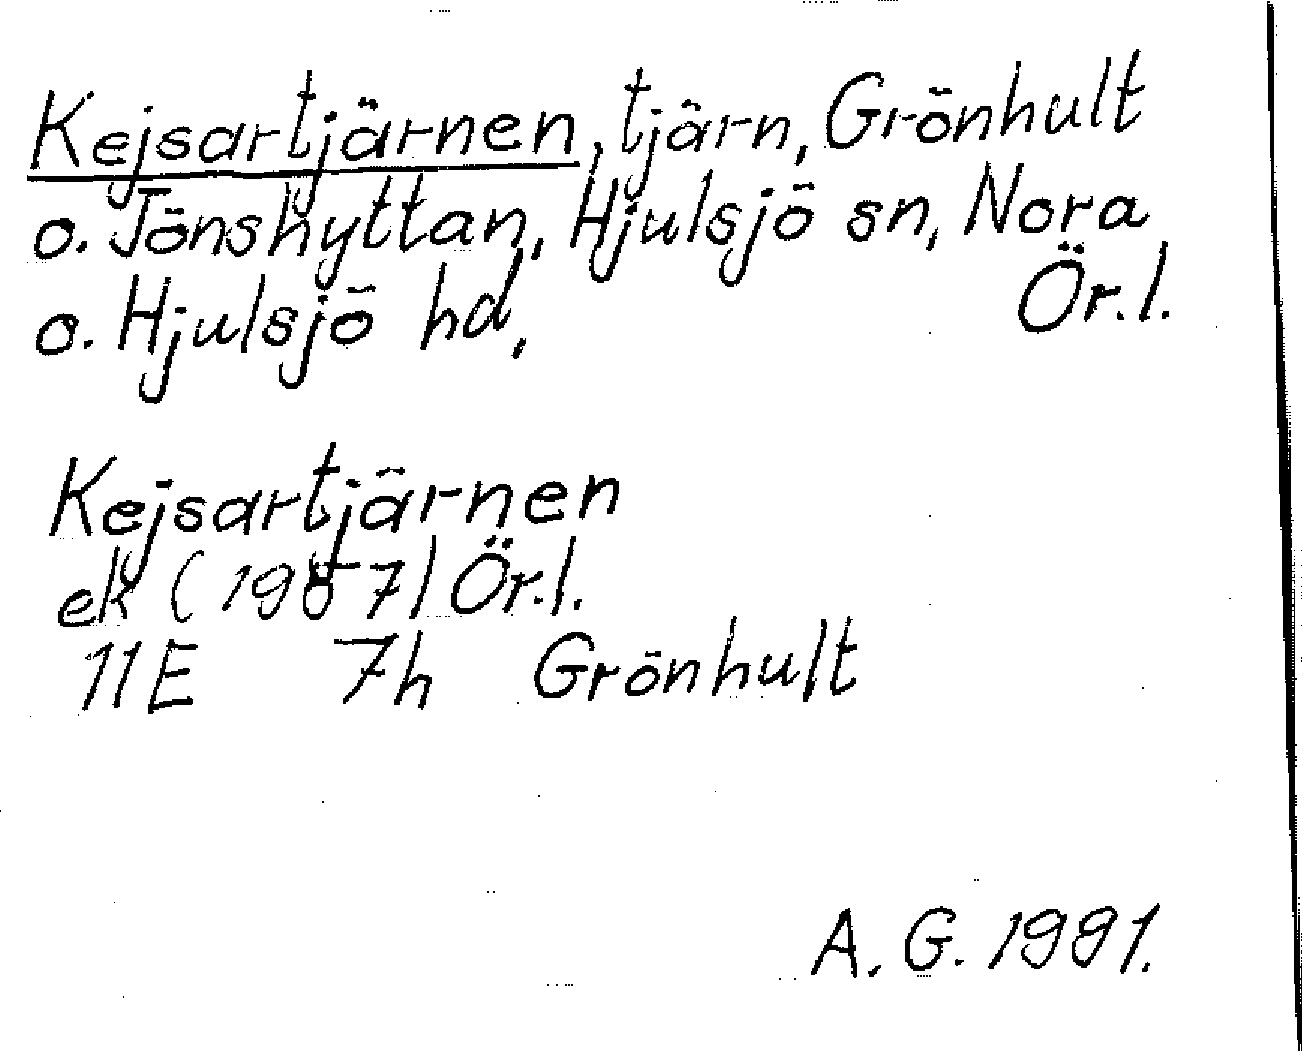 Kejsartjärnen, tjärn, Grönhult
o. Jönshyttan, Hjulsjö sn, Nora
o. Hjulsjö hd, Ör.l.
Kejsartjärnen
ek (1957) Ör.l.
11E 7h Grönhult
A. G. 1991.